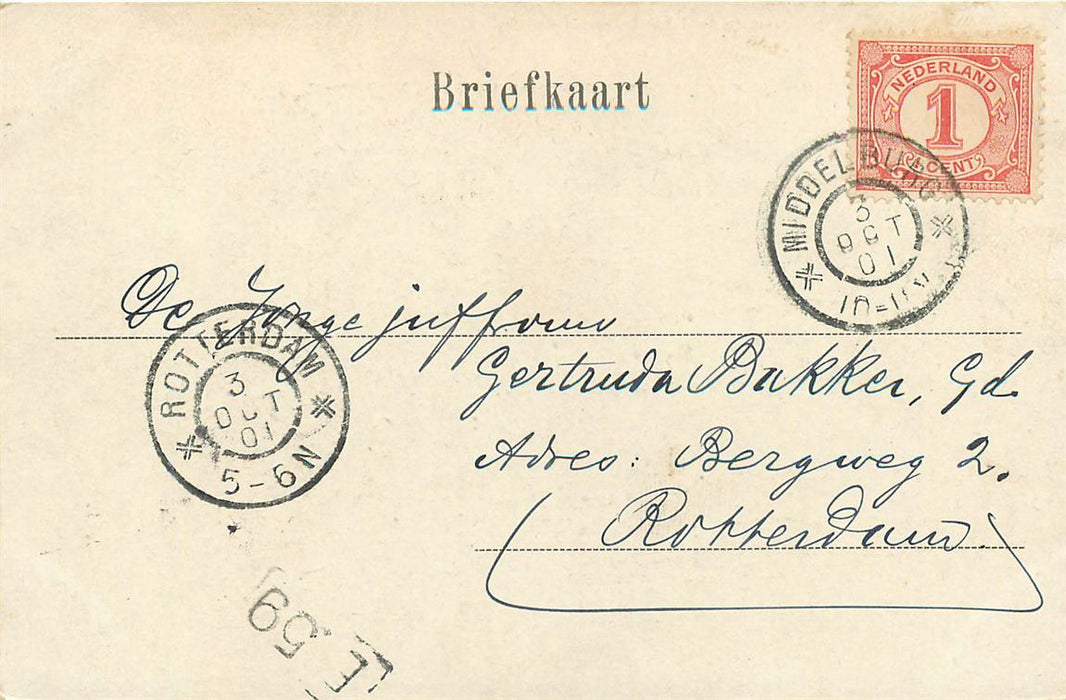 Briefkaart
NEDERLAND
1
CENT
MIDDELBURG
3
OCT
01
De Jonge juffrouw
Gertruda Bakker, Gd.
Adres: Bergweg 2.
Rotterdam.
ROTTERDAM
3
OCT
01
5-6N
E 59